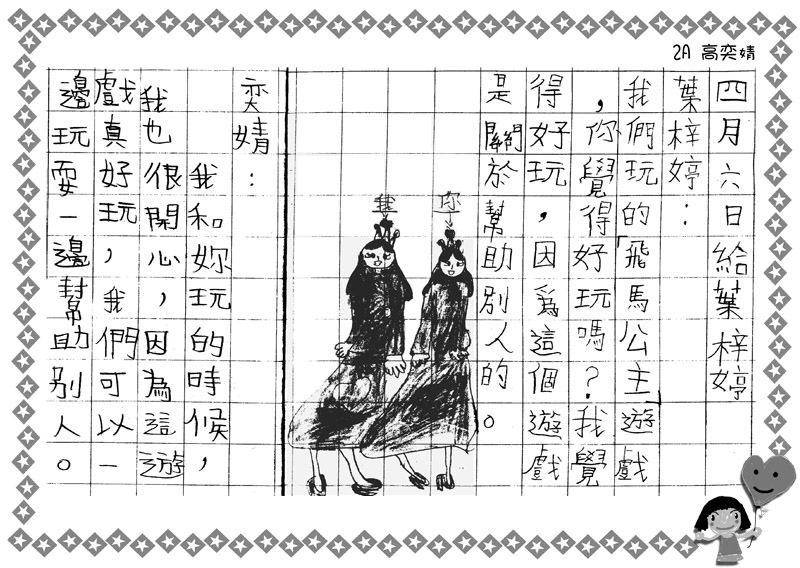 2A 高奕婧
四月六日給葉梓婷
葉梓婷：
我們玩的「飛馬公主」遊戲
，你覺得好玩嗎？我覺
得好玩，因為這個遊戲
是關於幫助別人的。
你
我
奕婧：
我和妳玩的時候，
我也很開心，因為這遊
戲真好玩，我們可以一
邊玩耍一邊幫助別人。